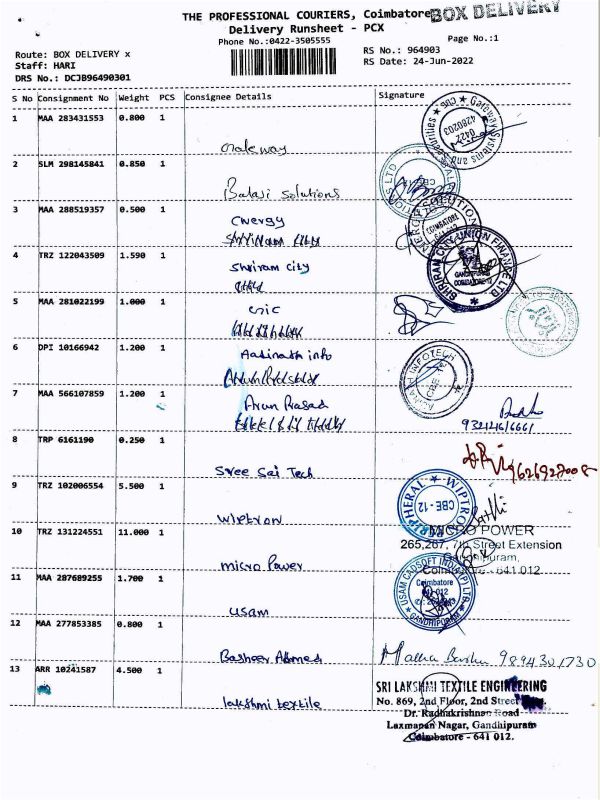 THE PROFESSIONAL COURIERS, Coimbatore
BOX DELIVERY
Delivery Runsheet - PCX
Phone No.:0422-3505555
Page No.:1
Route: BOX DELIVERY x
RS No.: 964903
Staff: HARI
RS Date: 24-Jun-2022
DRS No.: DCJB96490301
S No Consignment No Weight PCS Consignee Details Signature
1 MAA 283431553 0.800 1
Gateway
2 SLM 298145841 0.850 1
Balaji Solutions
3 MAA 288519357 0.500 1
Cnergy
4 TRZ 122043509 1.590 1
Shriram city
SHRIRAM CITY UNION FINANCE LTD
5 MAA 281022199 1.000 1
6 DPI 10166942 1.200 1
Aadinath info
7 MAA 566107859 1.200 1
Arun Prasad
8 TRP 6161190 0.250 1
Sree Sai Tech
9626927008
9 TRZ 102006554 5.500 1
Wiptron
WIPTRON PERIPHERAL
CBE - 12
10 TRZ 131224551 11.000 1
Micro Power
MICRO POWER
265,267, 7th Street Extension
Gandhipuram,
Coimbatore - 641 012
11 MAA 287689255 1.700 1
USAM
Coimbatore
641 012
GANDHIPURAM
12 MAA 277853385 0.800 1
Basheer Ahmed
9894301730
13 ARR 10241587 4.500 1
lakshmi textile
SRI LAKSHMI TEXTILE ENGINEERING
No. 869, 2nd Floor, 2nd Street
Dr. Radhakrishnan Road
Laxmanan Nagar, Gandhipuram
Coimbatore - 641 012.